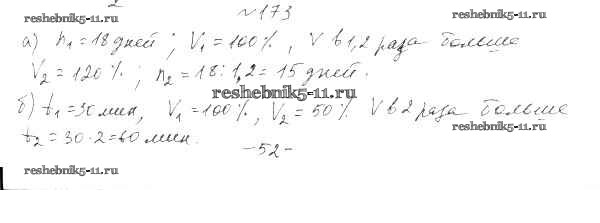 №173
reshebnik5-11.ru
reshebnik5-11.ru
а) n₁ = 18 дней; V₁ = 100%, V в 1,2 раза больше
V₂ = 120%; n₂ = 18 : 1,2 = 15 дней.
reshebnik5-11.ru
б) t₁ = 30 мин, V₁ = 100%, V₂ = 50% V в 2 раза больше
t₂ = 30 · 2 = 60 мин.
-52-
reshebnik5-11.ru
reshebnik5-11.ru